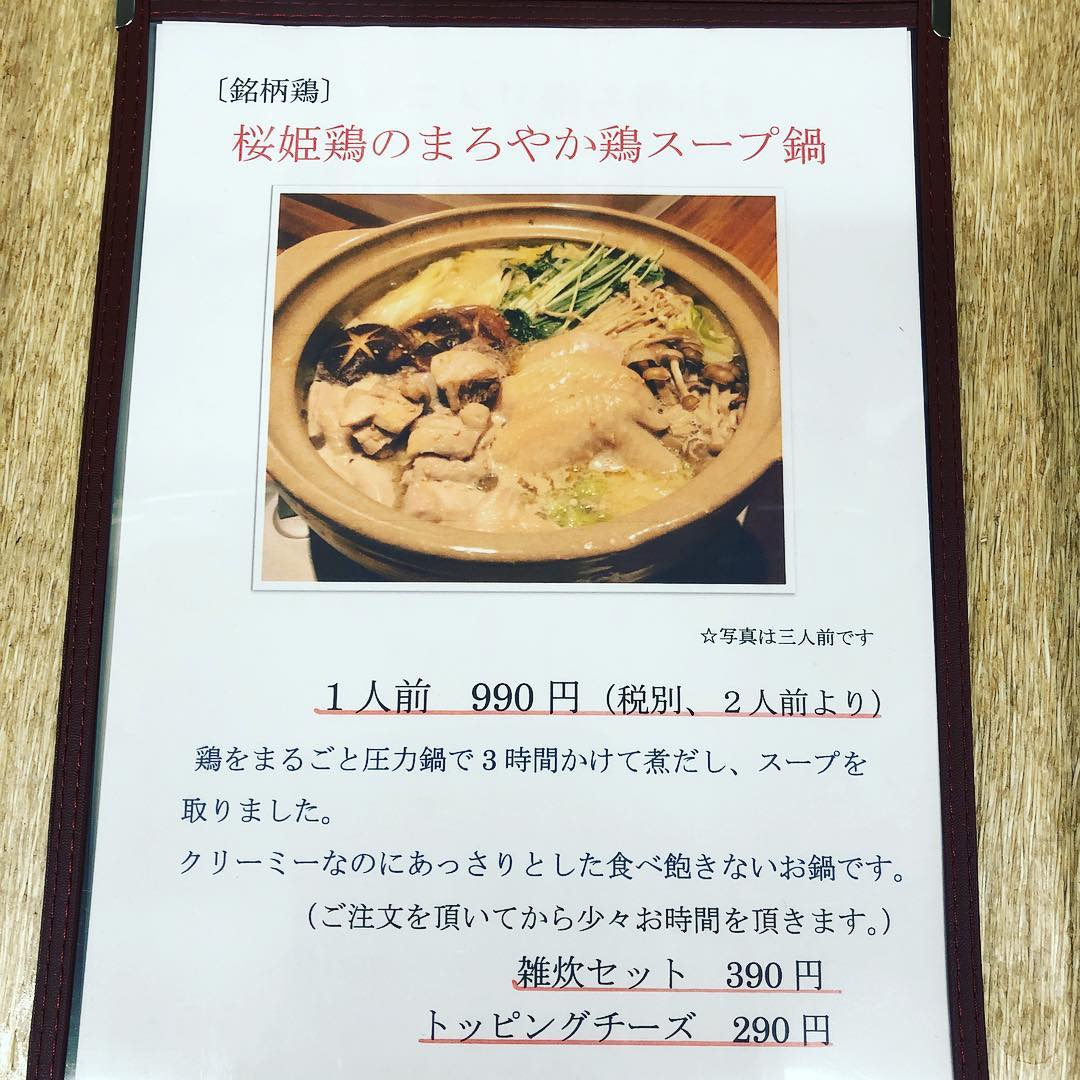 〔銘柄鶏〕
桜姫鶏のまろやか鶏スープ鍋
☆写真は三人前です
１人前　990 円（税別、２人前より）
鶏をまるごと圧力鍋で３時間かけて煮だし、スープを
取りました。
クリーミーなのにあっさりとした食べ飽きないお鍋です。
（ご注文を頂いてから少々お時間を頂きます。）
雑炊セット　390 円
トッピングチーズ　290 円